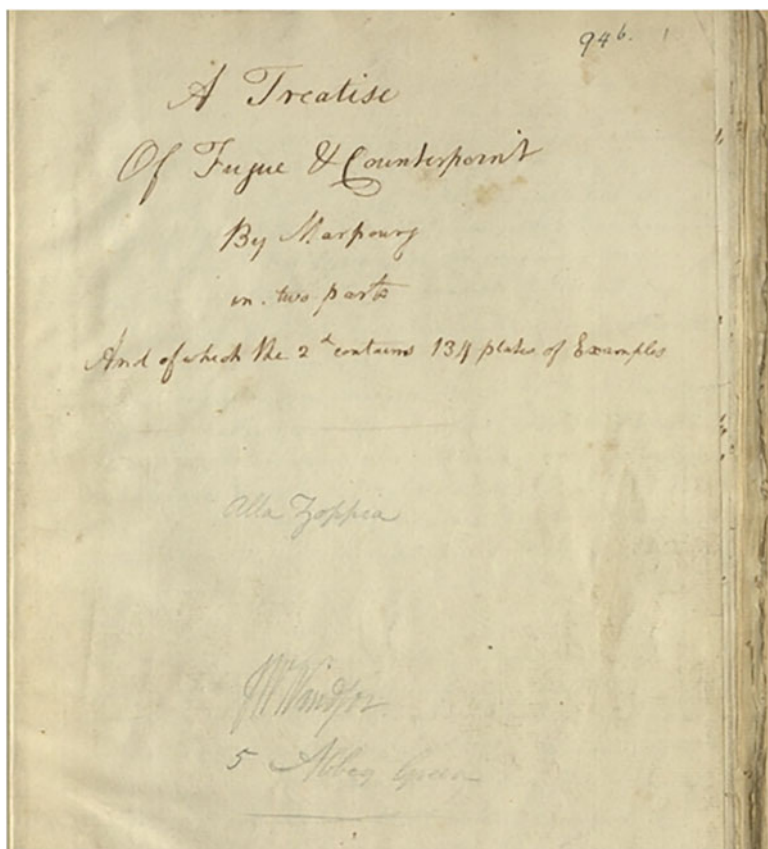 94 b. 1
A Treatise
Of Fugue & Counterpoint
By Marpourg
in two parts
And of which the 2d contains 134 plates of Examples
Alla Zoppia
JW Windsor
5 Abbey Green